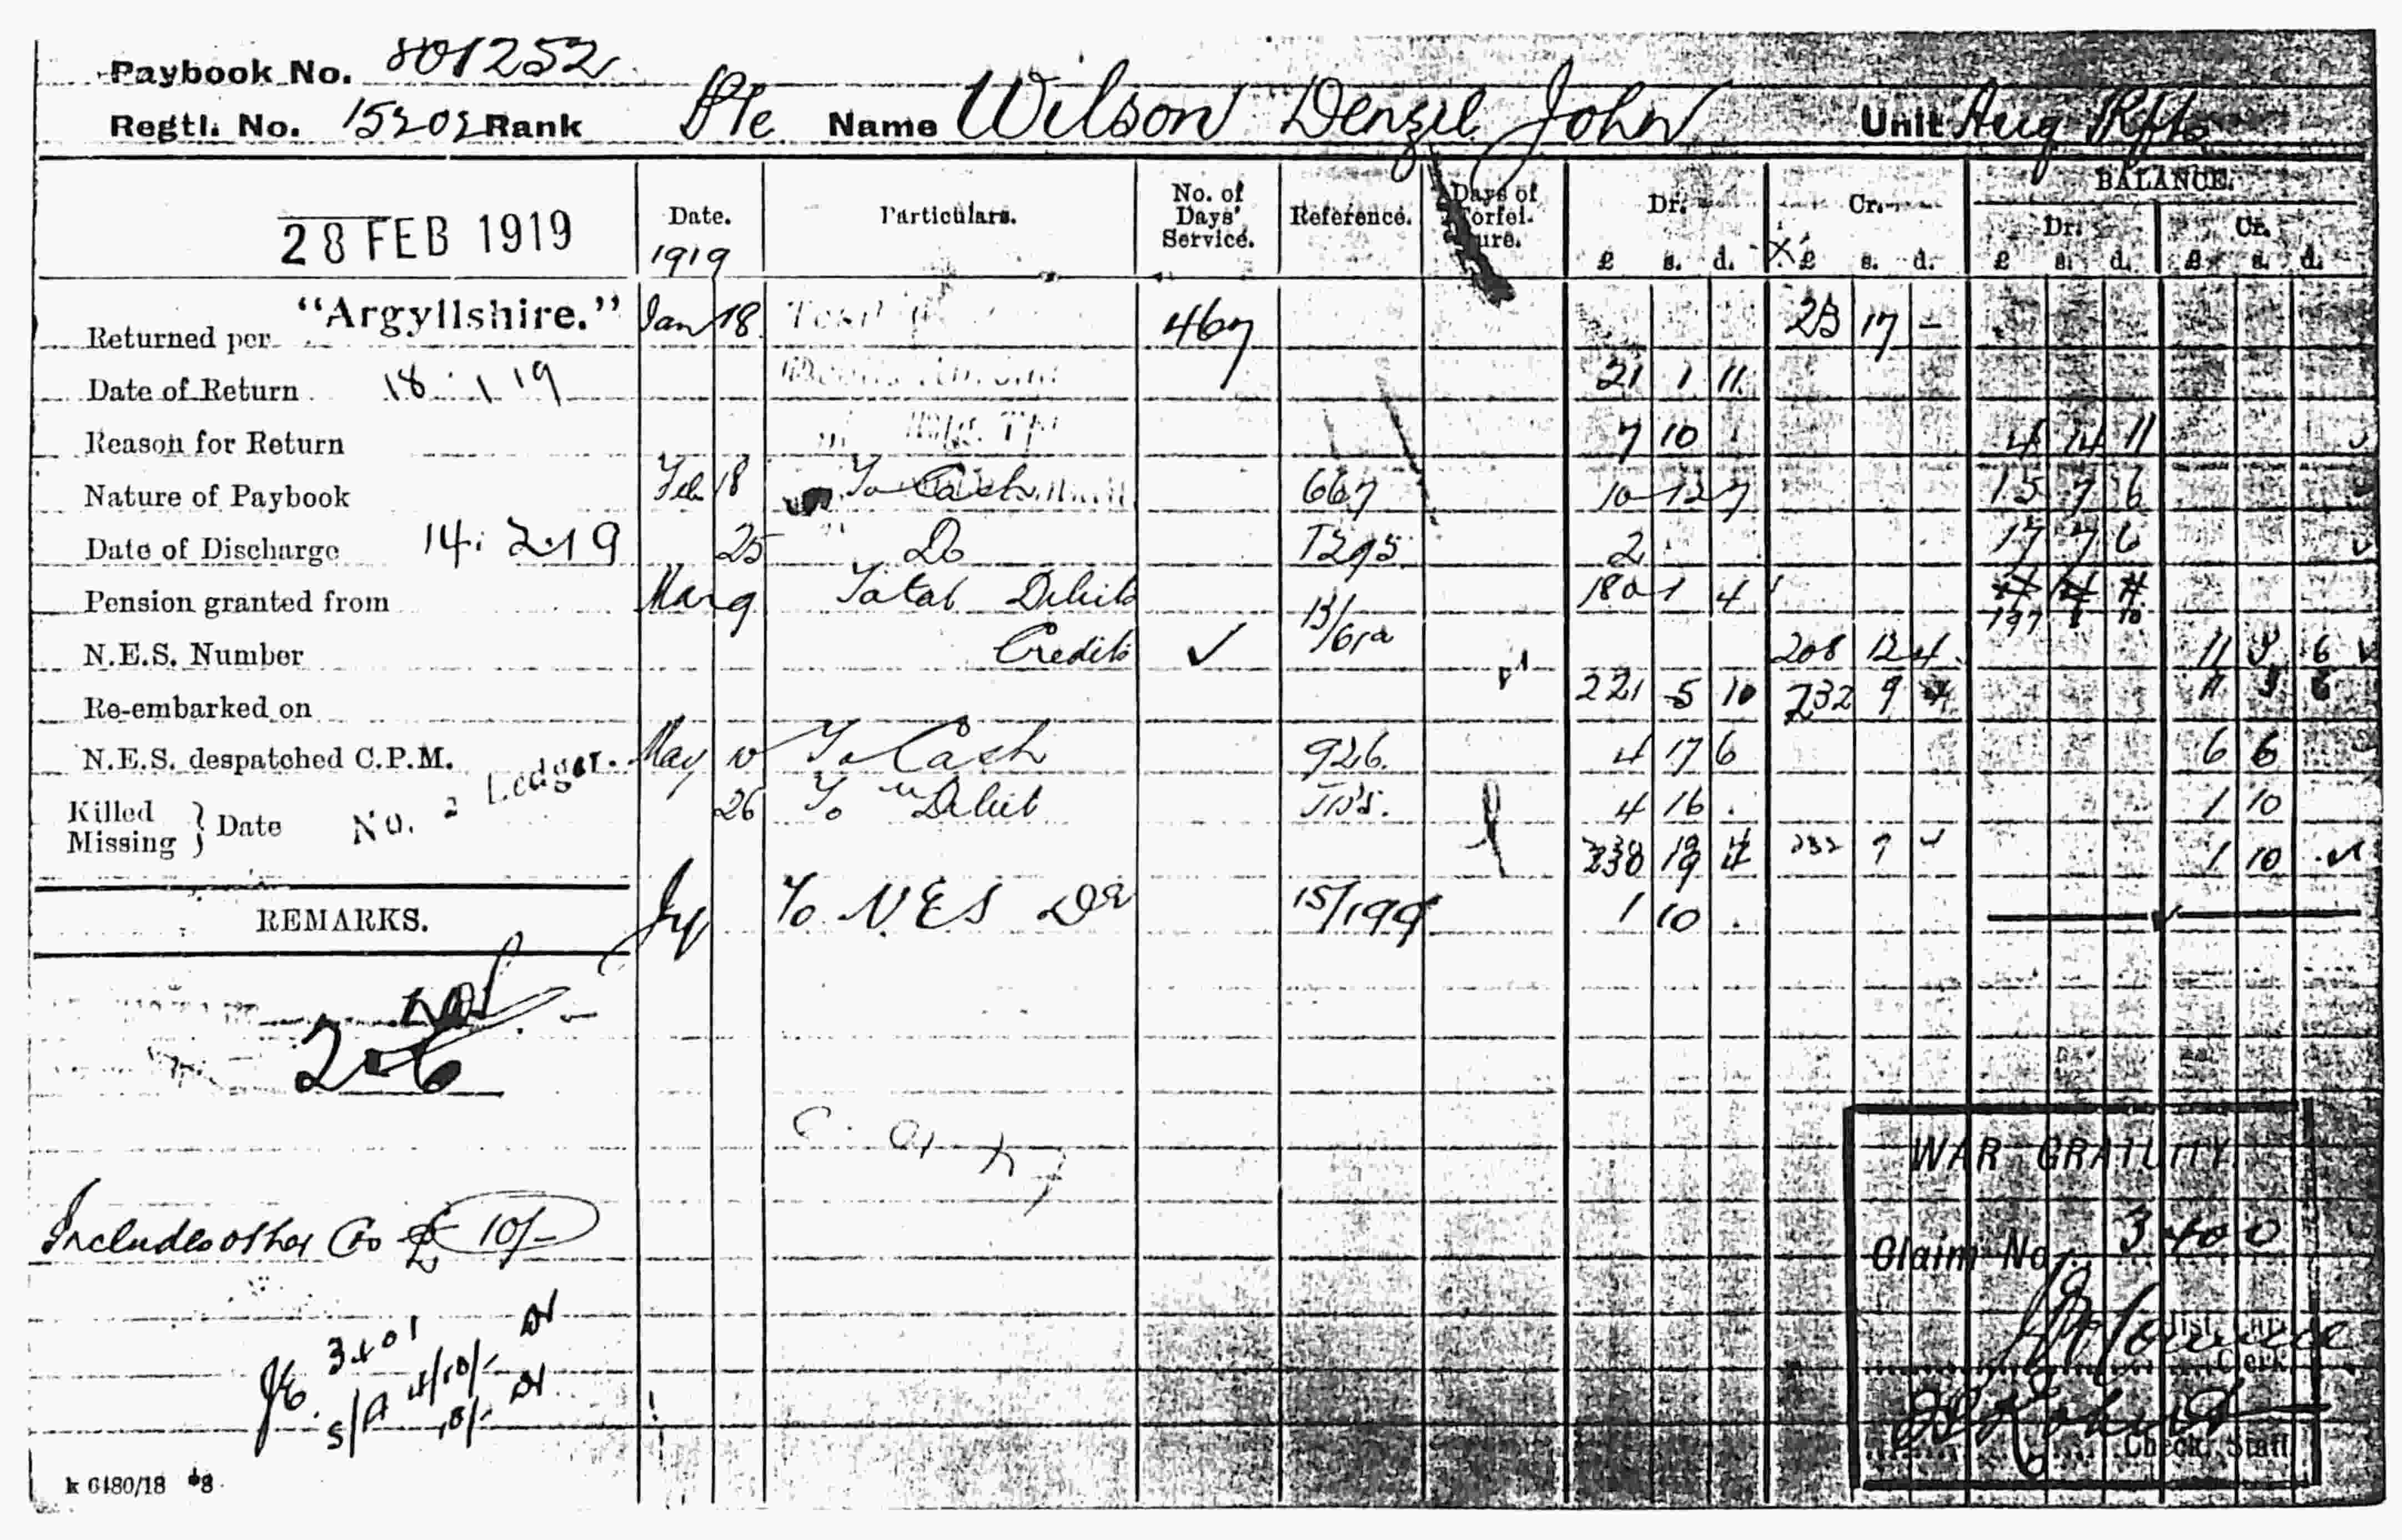 Paybook No. 801252
Regtl. No. 15202 Rank Pte Name Wilson Denzil John Unit Aug Rfts
28 FEB 1919
Date. Particulars. No. of Days' Service. Reference. Days of Forfeiture. Dr. Cr. BALANCE.
Dr. Cr.
1919 £ s. d. £ s. d. £ s. d. £ s. d.
Returned per "Argyllshire." Jan 18 467 23 17 -
Date of Return 18 . 1 19 21 1 11
Reason for Return 7 10 . 4 14 11
Nature of Paybook Feb 18 To Cash 667 10 12 7 15 7 6
Date of Discharge 14. 2.19 25 Do T295 2 . . 17 7 6
Pension granted from Mar 9 Total Debits 13/61a 180 1 4 197 8 10
N.E.S. Number Credits 208 12 4 11 3 6
Re-embarked on 221 5 10 232 9 4 11 3 6
N.E.S. despatched C.P.M. May 10 To Cash 926. 4 17 6 6 6
No. 2 Ledger.
Killed
Missing } Date 26 To Debit 4 16 . 1 10
230 19 4 232 9 4 1 10
REMARKS. To N E S Dr 15/199 1 10 .
206
Includes other Co £ 10/-
3401
S/A 4/10/- Dr
10/- Dr
WAR GRATUITY
Claim No. 3400
Clerk
Check. Staff
k 6480/18